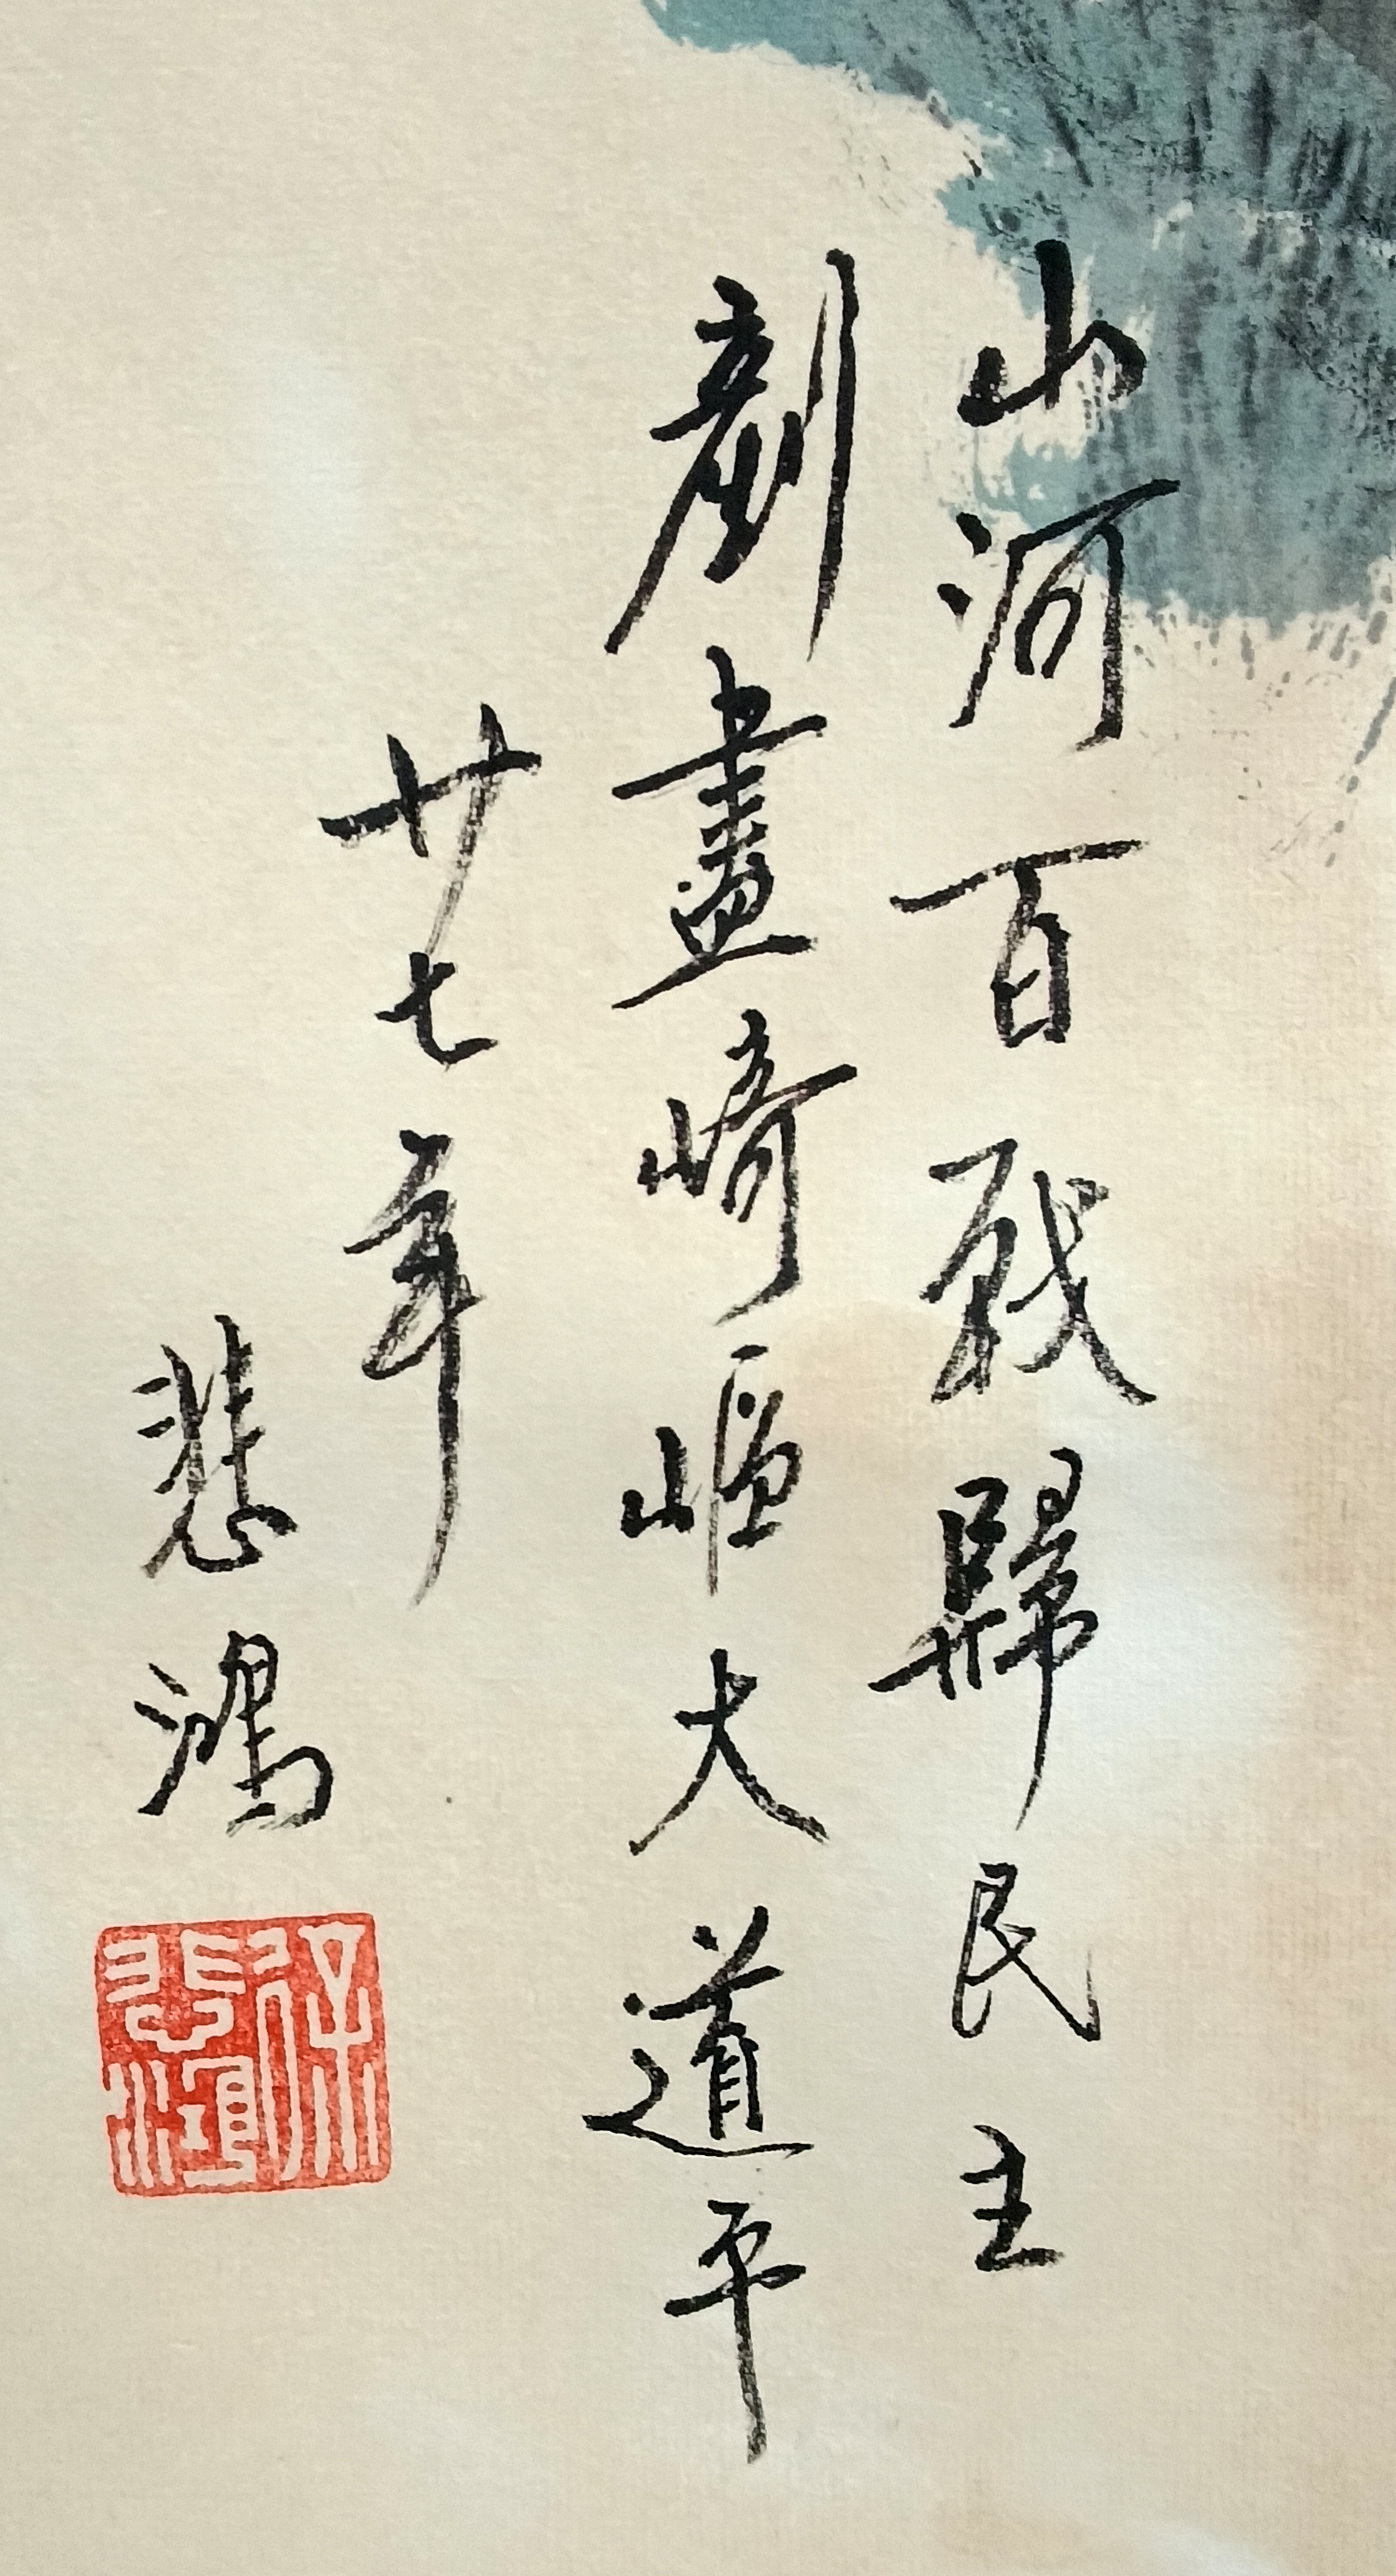 山河百戰歸民主
剷盡崎嶇大道平
廿七年
悲鴻
徐悲鴻